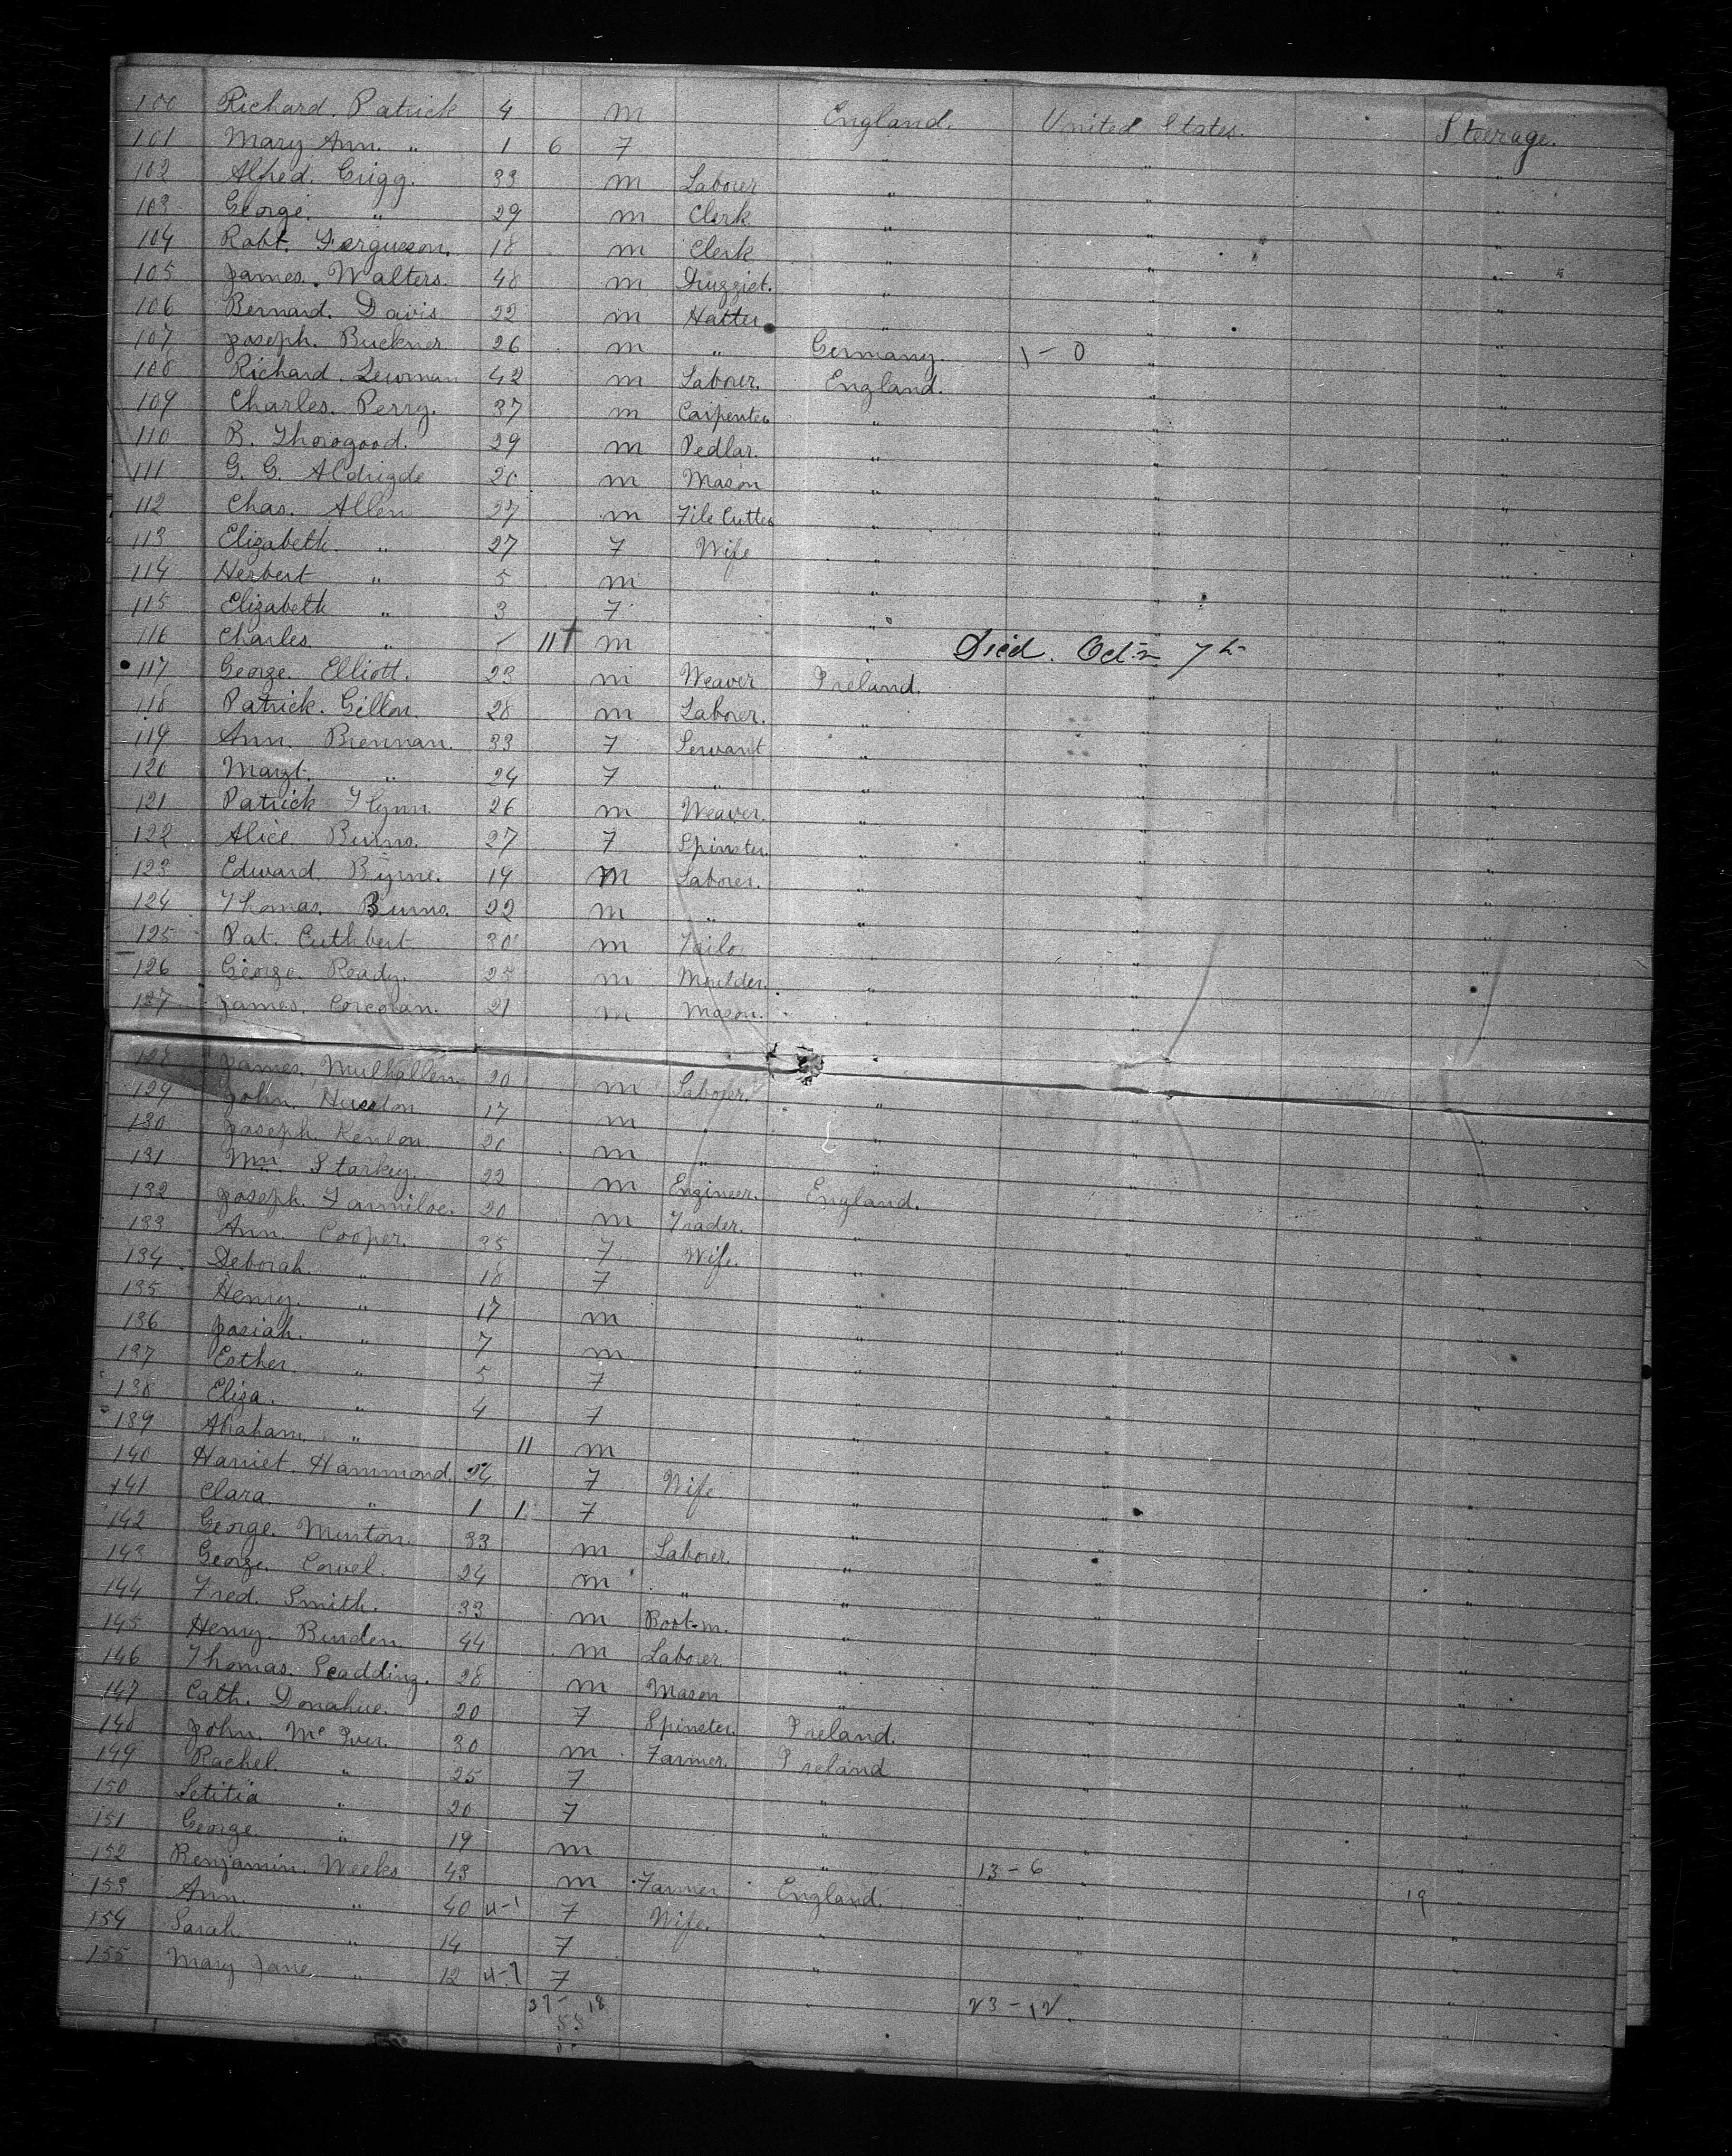 100 Richard. Patrick 4 m England. United States. Steerage.
101 Mary Ann. " 1 6 F " " "
102 Alfred. Grigg. 33 m Laborer " " "
103 George. " 29 m Clerk " " "
104 Robt. Fergusson. 18 m Clerk " " "
105 James. Walters. 48 m Druggist. " " "
106 Bernard. Davis 22 m Hatter " " "
107 Joseph. Buckner 26 m " Germany. 1-0 " "
108 Richard. 42 m Laborer. England. " "
109 Charles. Perry. 37 m Carpenter " " "
110 B. Thorogood. 29 m Pedlar. " " "
111 G. G. Aldrigde 20 m Mason " " "
112 Chas. Allen 27 m File Cutter " " "
113 Elizabeth " 27 F Wife " " "
114 Herbert " 5 m " " "
115 Elizabeth " 3 F " " "
116 Charles " - 11 † m " Died. Oct 7th "
117 George. Elliott. 23 m Weaver Ireland. " "
118 Patrick. Gillon. 28 m Laborer. " " "
119 Ann. Brennan. 33 F Servant " " "
120 Margt. " 24 F " " " "
121 Patrick Flynn. 26 m Weaver. " " "
122 Alice. Burns. 27 F Spinster. " " "
123 Edward. Byrne. 19 m Laborer. " " "
124 Thomas. Burns. 22 m " " " "
125 Pat. Cuthbert 30 m Tailo " " "
126 George. Ready. 25 m Moulder. " " "
127 James. Corcoran. 21 m Mason. " " "
128 James. Mulhallen. 20 m Laborer. " " "
129 John. Huston 17 m " " " "
130 Joseph. Kenlon 20 m " " " "
131 Wm. Starkey. 22 m Engineer. England. " "
132 Joseph. 20 m Trader. " " "
133 Ann Cooper. 35 F Wife. " " "
134 Deborah. " 18 F " " "
135 Henry. " 17 m " " "
136 Josiah. " 7 m " " "
137 Esther. " 5 F " " "
138 Eliza. " 4 F " " "
139 Abraham. " 11 m " " "
140 Harriet. Hammond. 24 F Wife " " "
141 Clara. " 1 1 F " " "
142 George. Minton. 33 m Laborer. " " "
143 George. Cowel. 24 m " " " "
144 Fred. Smith. 33 m Boot-m. " " "
145 Henry. Burden. 44 m Laborer. " " "
146 Thomas. Scadding. 28 m Mason " " "
147 Cath. Donahue. 20 F Spinster. Ireland. " "
148 John. Mc Iver. 30 m Farmer. Ireland " "
149 Rachel. " 25 F " " "
150 Letitia " 20 F " " "
151 George. " 19 m " 13-6 " "
152 Benjamin. Weeks 43 m Farmer England. " 19 "
153 Ann. " 40 4-1 F Wife. " " "
154 Sarah " 14 F " " "
155 Mary Jane " 12 4-7 F " " "
37- 18 23-12
55